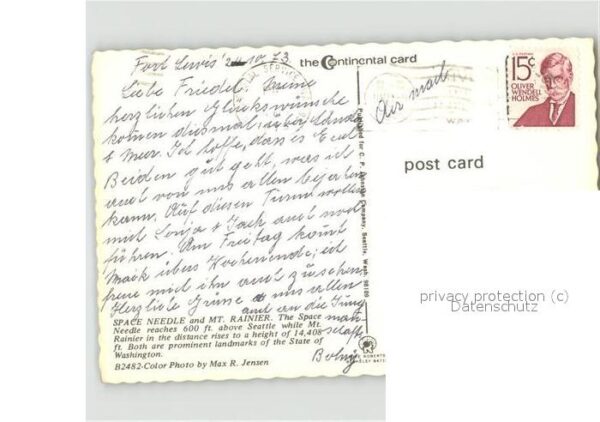 Fort Lewis 24.10.73
the Continental card
Liebe Friedel. Meine
herzlichen Glückswünsche
kommen diesmal über Länder
+ Meer. Ich hoffe, dass es Euch
Beiden gut geht, was ich
auch von uns allen
kann. Auf diesen Turm wollen
mich Sonja + Jack auch noch
führen. Am Freitag kommt
Maik übers Wochenende; ich
freue mich ihn auch zu sehen
Herzliche Grüsse uns allen
und an die
SPACE NEEDLE and MT. RAINIER. The Space
Needle reaches 600 ft. above Seattle while Mt.
Rainier in the distance rises to a height of 14,408
ft. Both are prominent landmarks of the State of
Washington.
B2482-Color Photo by Max R. Jensen
Published for C. P. Johnston Company, Seattle, Wash. 98109
Air mail
15¢
OLIVER
WENDELL
HOLMES
post card
privacy protection (c)
Datenschutz